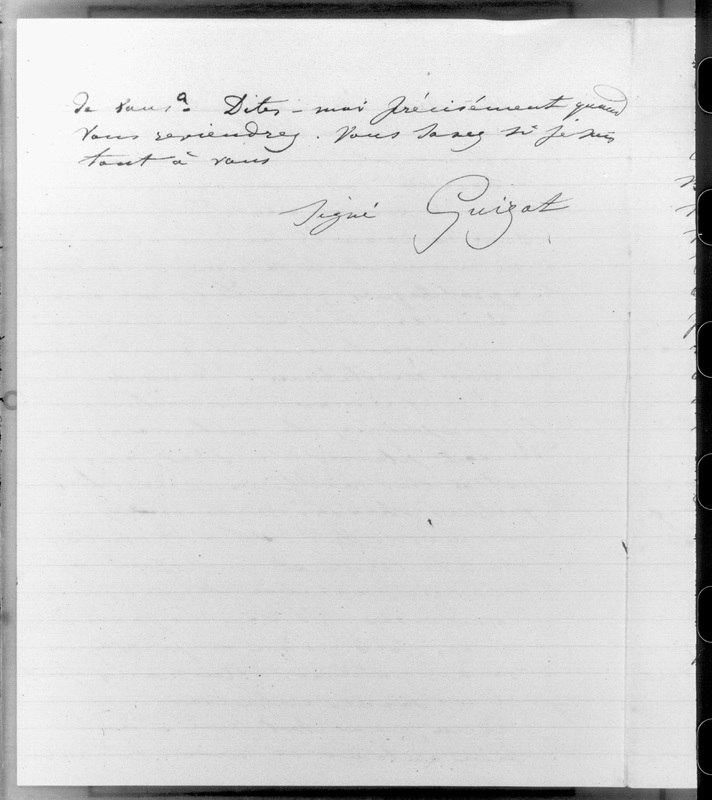 de vous. Dites-moi précisément quand
vous reviendrez. Vous savez si je suis
tout à vous
Signé Guizot